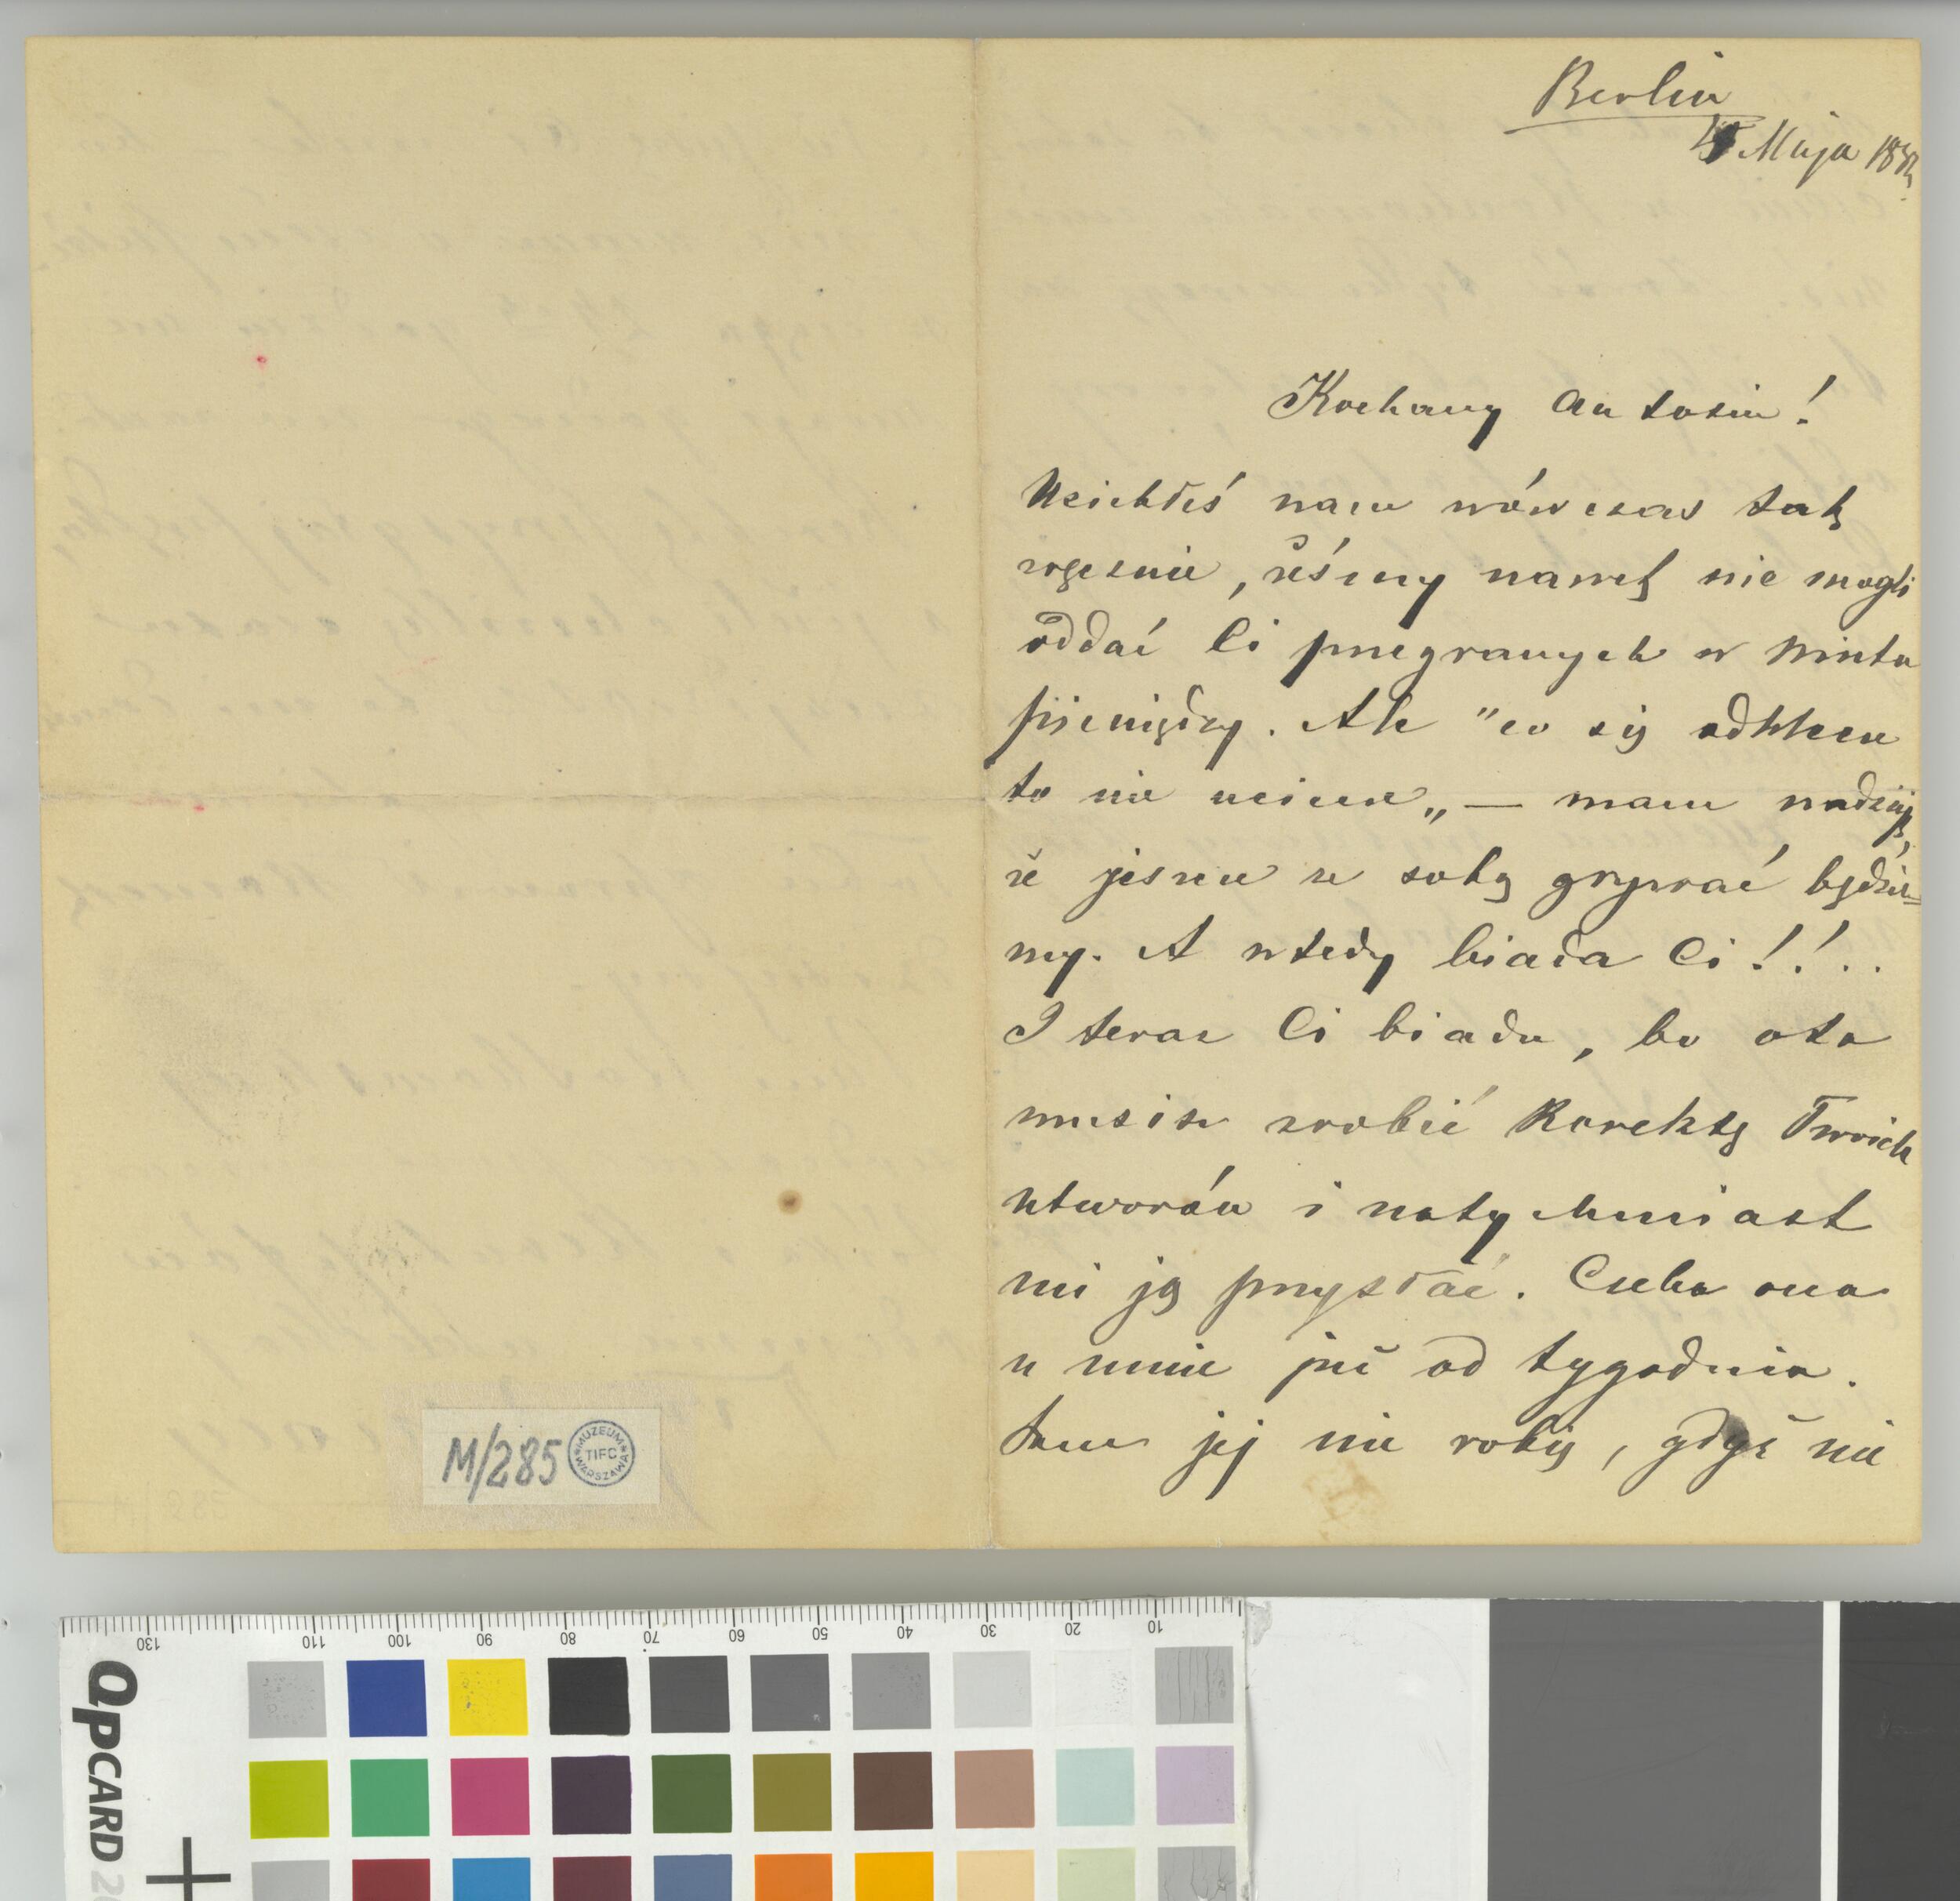 Berlin
Maja
Kochany Antosiu!
Uciekłeś nam wówczas tak
wcześnie, żeśmy nawet nie mogli
oddać Ci przegranych w winta
pieniędzy. Ale "co się odwlecze
to nie uciecze„ — mam nadzieję,
że jeszcze ze sobą grywać będzie=
my. A wtedy biada Ci!!..
I teraz Ci biada, bo oto
musisz zrobić Korektę Twoich
utworów i natychmiast
mi ją przysłać. Czeka ona
u mnie już od tygodnia.
Sam jej nie robię, gdyż nie
M/285
MUZEUM
TIFC
WARSZAWA
10 20 30 40 50 60 70 80 90 100 110 130
QPCARD 20